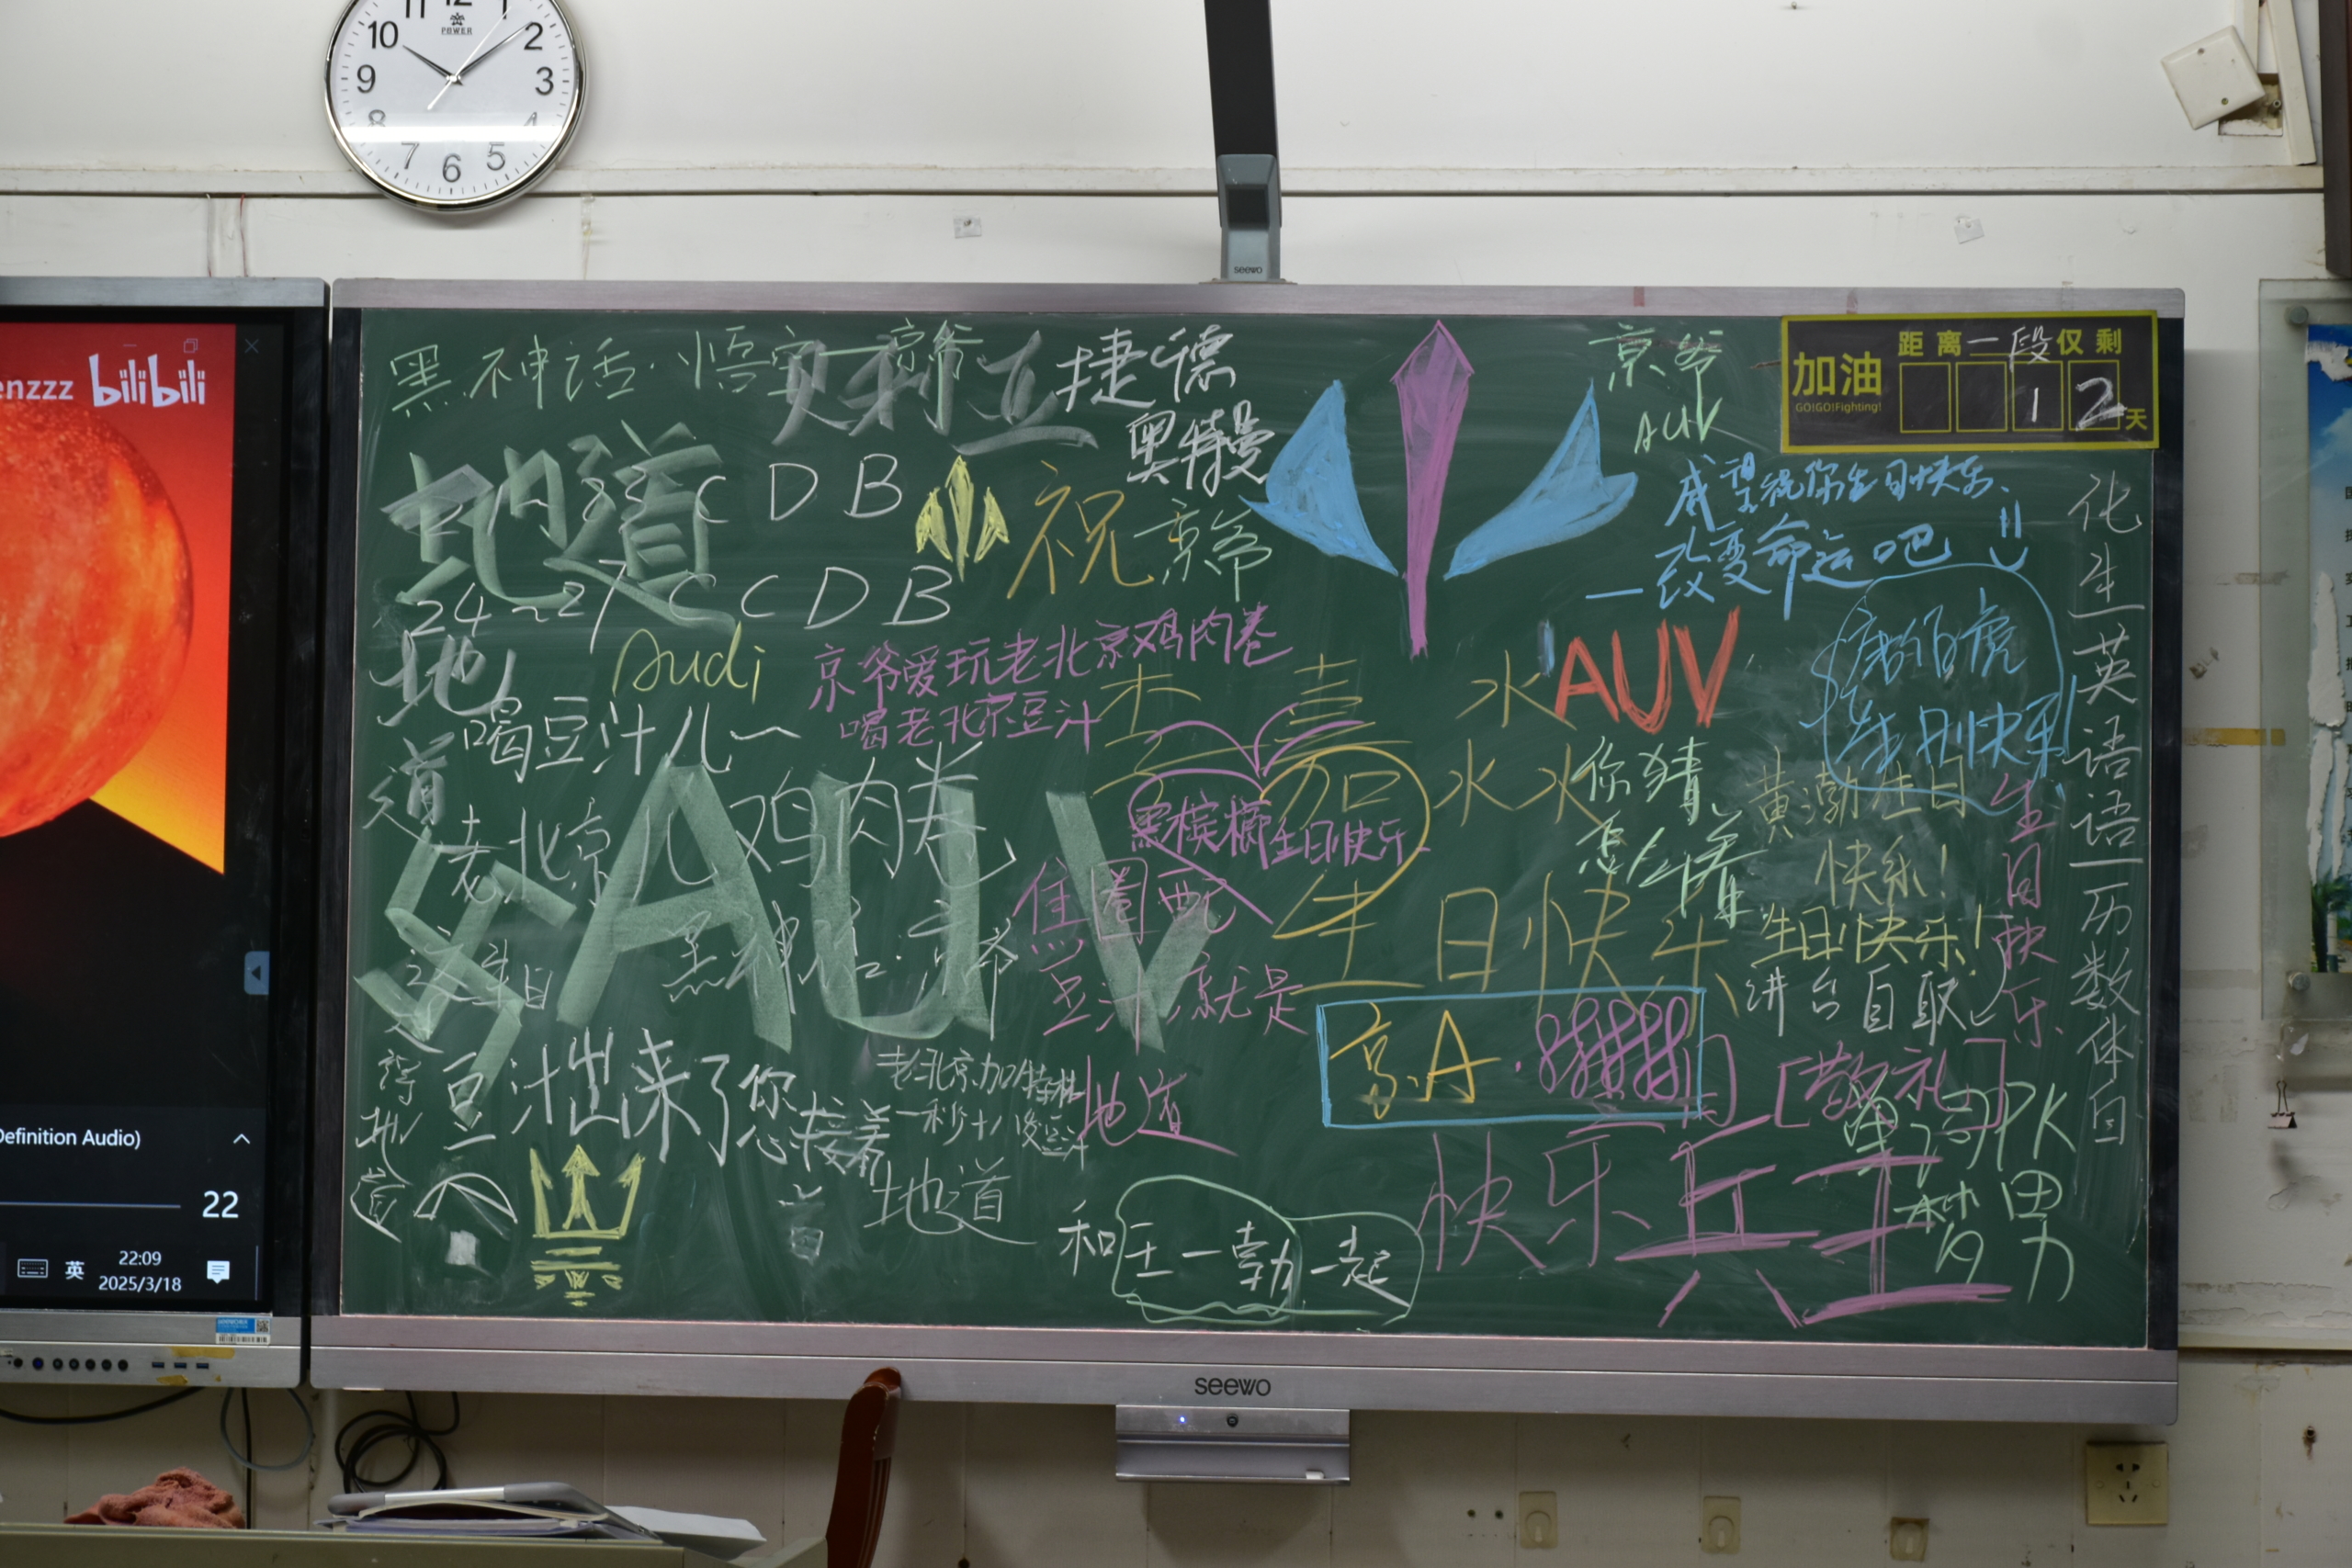 11 12 1
10 2
POWER
9 3
8 4
7 6 5
seewo
enzzz bilibili
Definition Audio)
22
英
22:09
2025/3/18
黑神话·悟空—京爷
贝利亚
捷德
奥特曼
京爷
AUV
加油
GO!GO!Fighting!
距离一段仅剩
12天
地道
C D B
祝
京爷
24~27 C C D B
Audi
地
道
喝豆汁儿一
京爷爱玩老北京鸡肉卷
喝老北京豆汁
威望祝你生日快乐、
一改变命运吧
AUV
生日快乐
水
水水
加
黑槟榔生日快乐
你猜、
怎么着
黄渤生日
快乐!
生日快乐!
讲台自取
生日快乐
化生英语语历数体自
老北京儿鸡肉卷
AUV
焦圈配
豆汁,就是
地道
生日快乐
京A·888888
[敬礼]
豆汁出来了您接着
老北京加特林
一秒十八
豆汁
地道
得
地
道
和王一勃一起
快乐兵王
单词PK
梦男
seewo